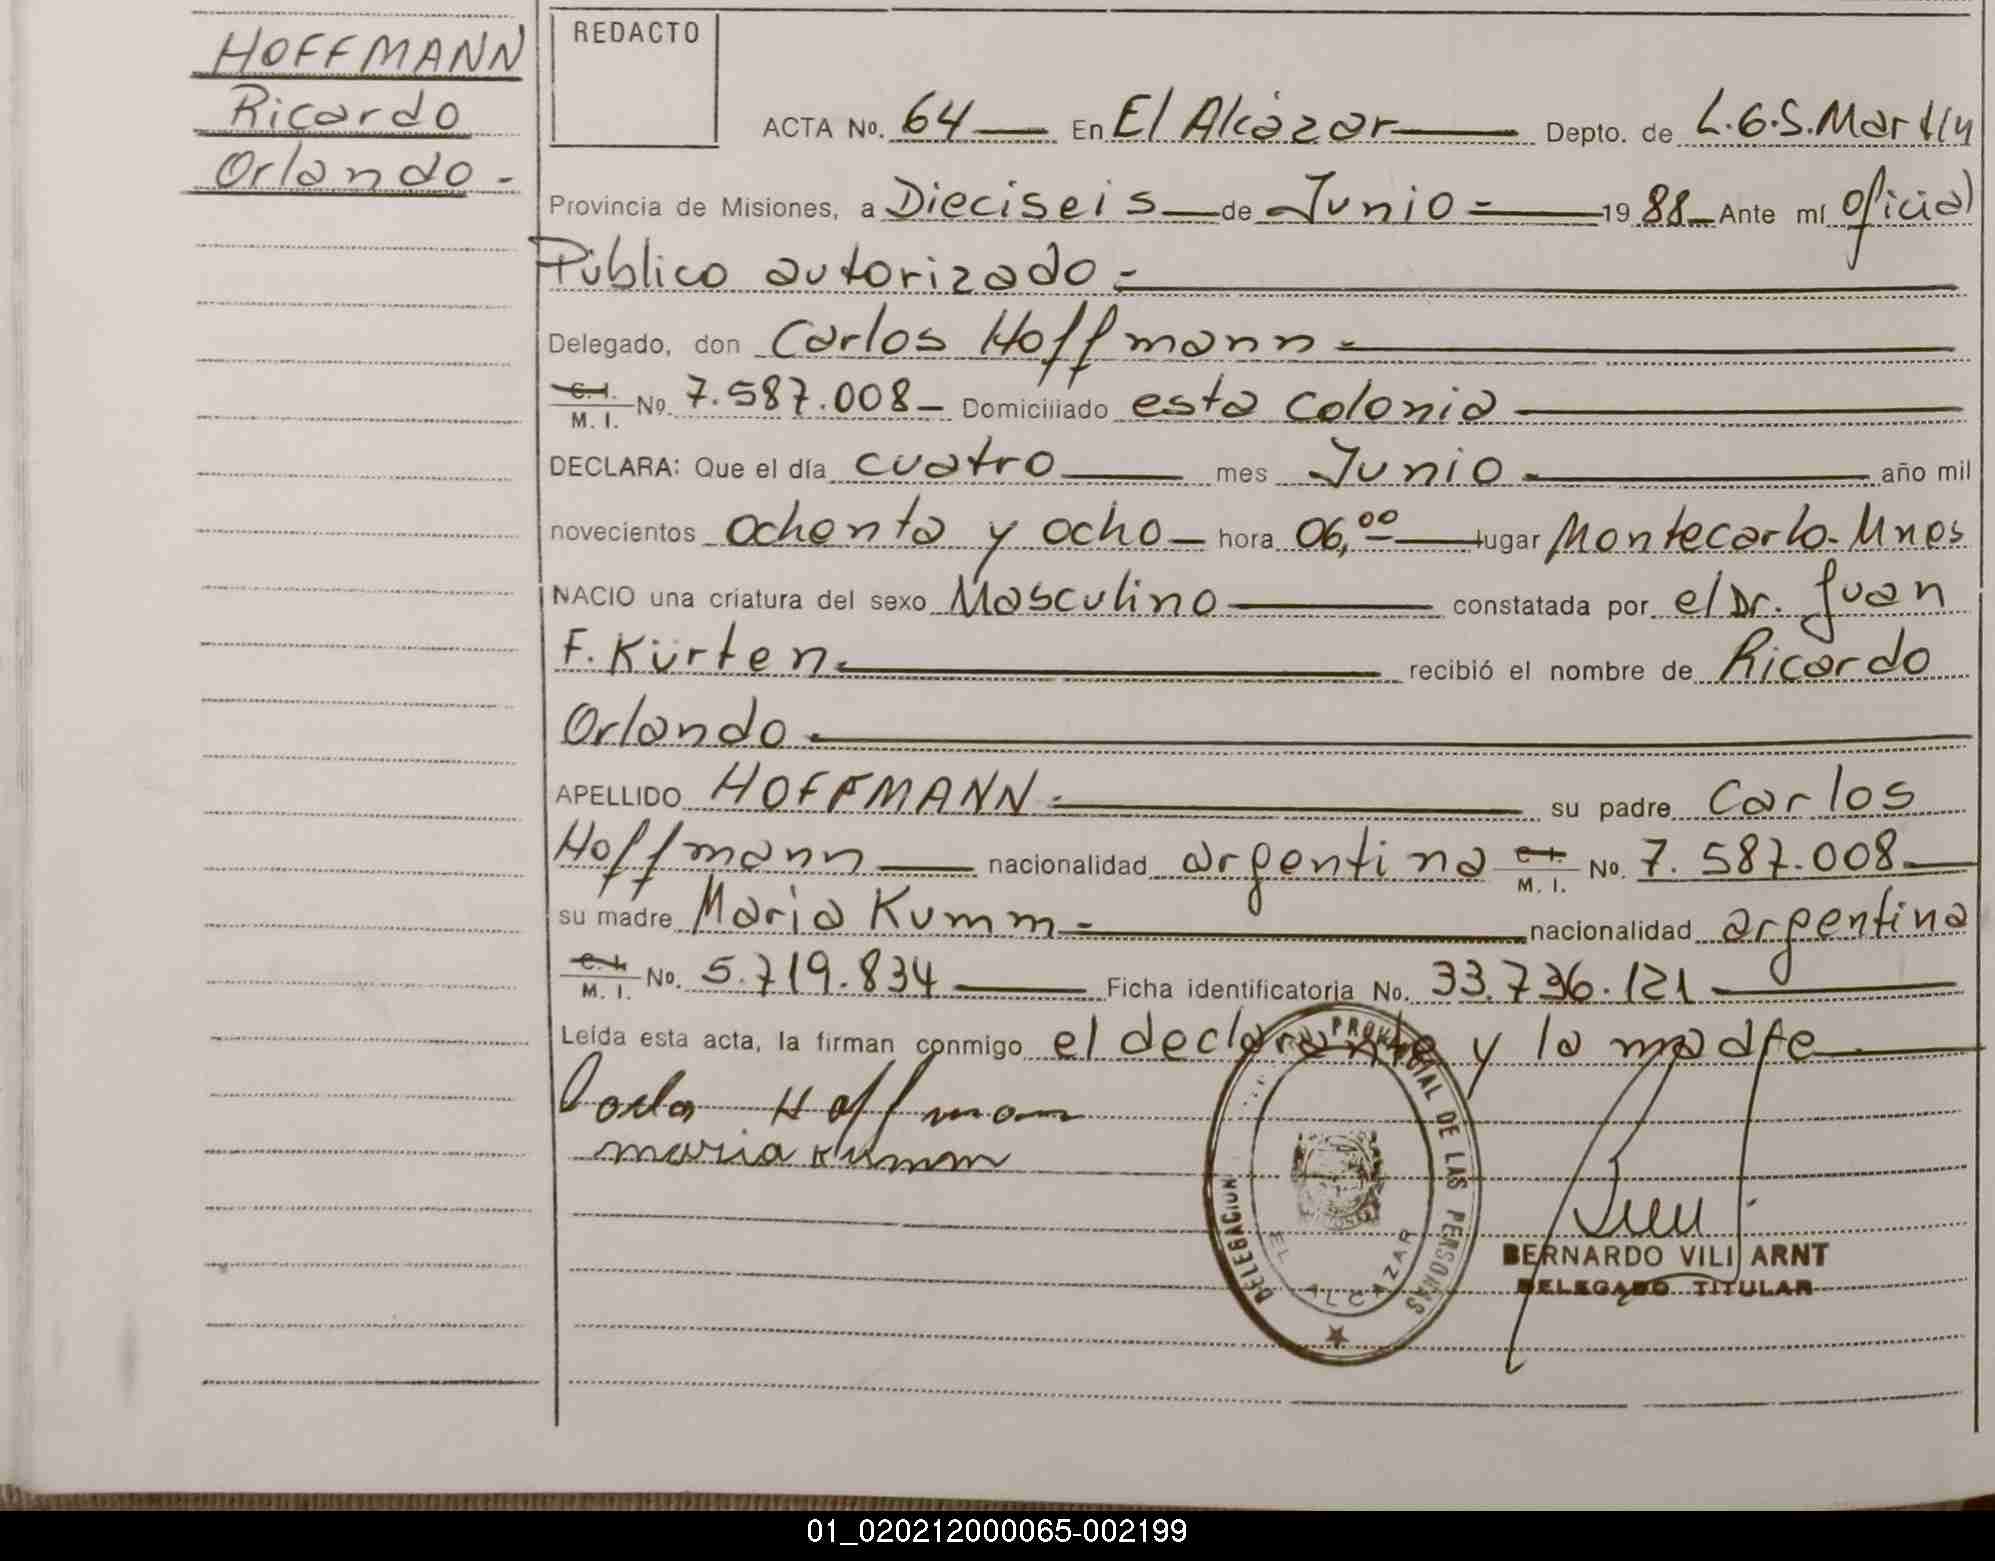 HOFFMANN
Ricardo
Orlando -
REDACTO
ACTA No. 64 En El Alcázar Depto. de L.G.S.Martín
Provincia de Misiones, a Dieciseis de Junio - 19 88 Ante mí oficial
Público autorizado -
Delegado, don Carlos Hoffmann -
C. I. M. I. No. 7.587.008 - Domiciliado esta colonia
DECLARA: Que el día cuatro mes Junio - año mil
novecientos ochenta y ocho - hora 06,00 lugar Montecarlo - Mnes
NACIO una criatura del sexo Masculino constatada por el Dr. Juan
F. Kürten recibió el nombre de Ricardo
Orlando
APELLIDO HOFFMANN - su padre Carlos
Hoffmann nacionalidad argentina C. I. M. I. No. 7.587.008
su madre Maria Kumm - nacionalidad argentina
C. I. M. I. No. 5.719.834 Ficha identificatoria No. 33.736.121
Leída esta acta, la firman conmigo el declarante y la madre
Carlos Hoffmann
maria Kumm
DELEGACION PROVINCIAL DE LAS PERSONAS
EL ALCAZAR
BERNARDO VILI ARNT
DELEGADO TITULAR
01_020212000065-002199